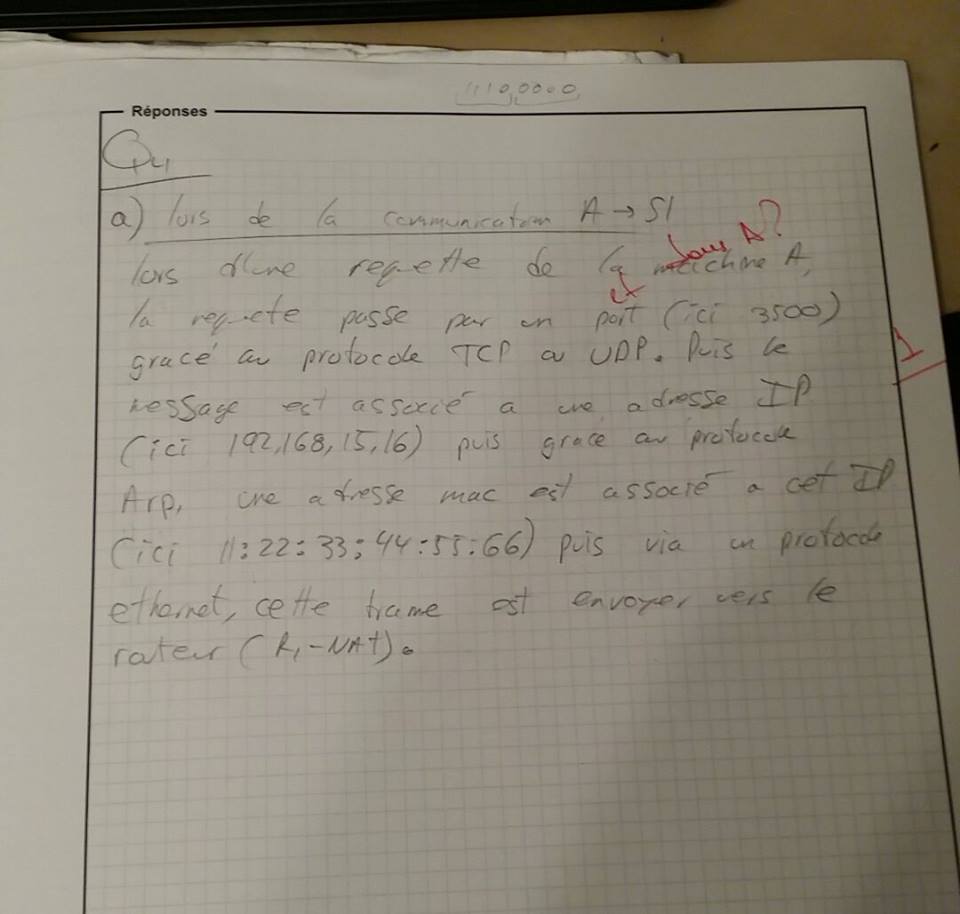 1110,0000
Réponses
Q4
a) lors de la communication A → S1
dans A?
lors d'une requette de la machine A,
et
la requete passe par un port (ici 3500)
grace au protocole TCP ou UDP. Puis le
1
message est associé a une adresse IP
(ici 192,168,15,16) puis grace au protocole
Arp, une adresse mac est associé a cet IP
(ici 11:22:33:44:55:66) puis via un protocole
ethernet, cette trame est envoyer vers le
rateur (R1-NAT).